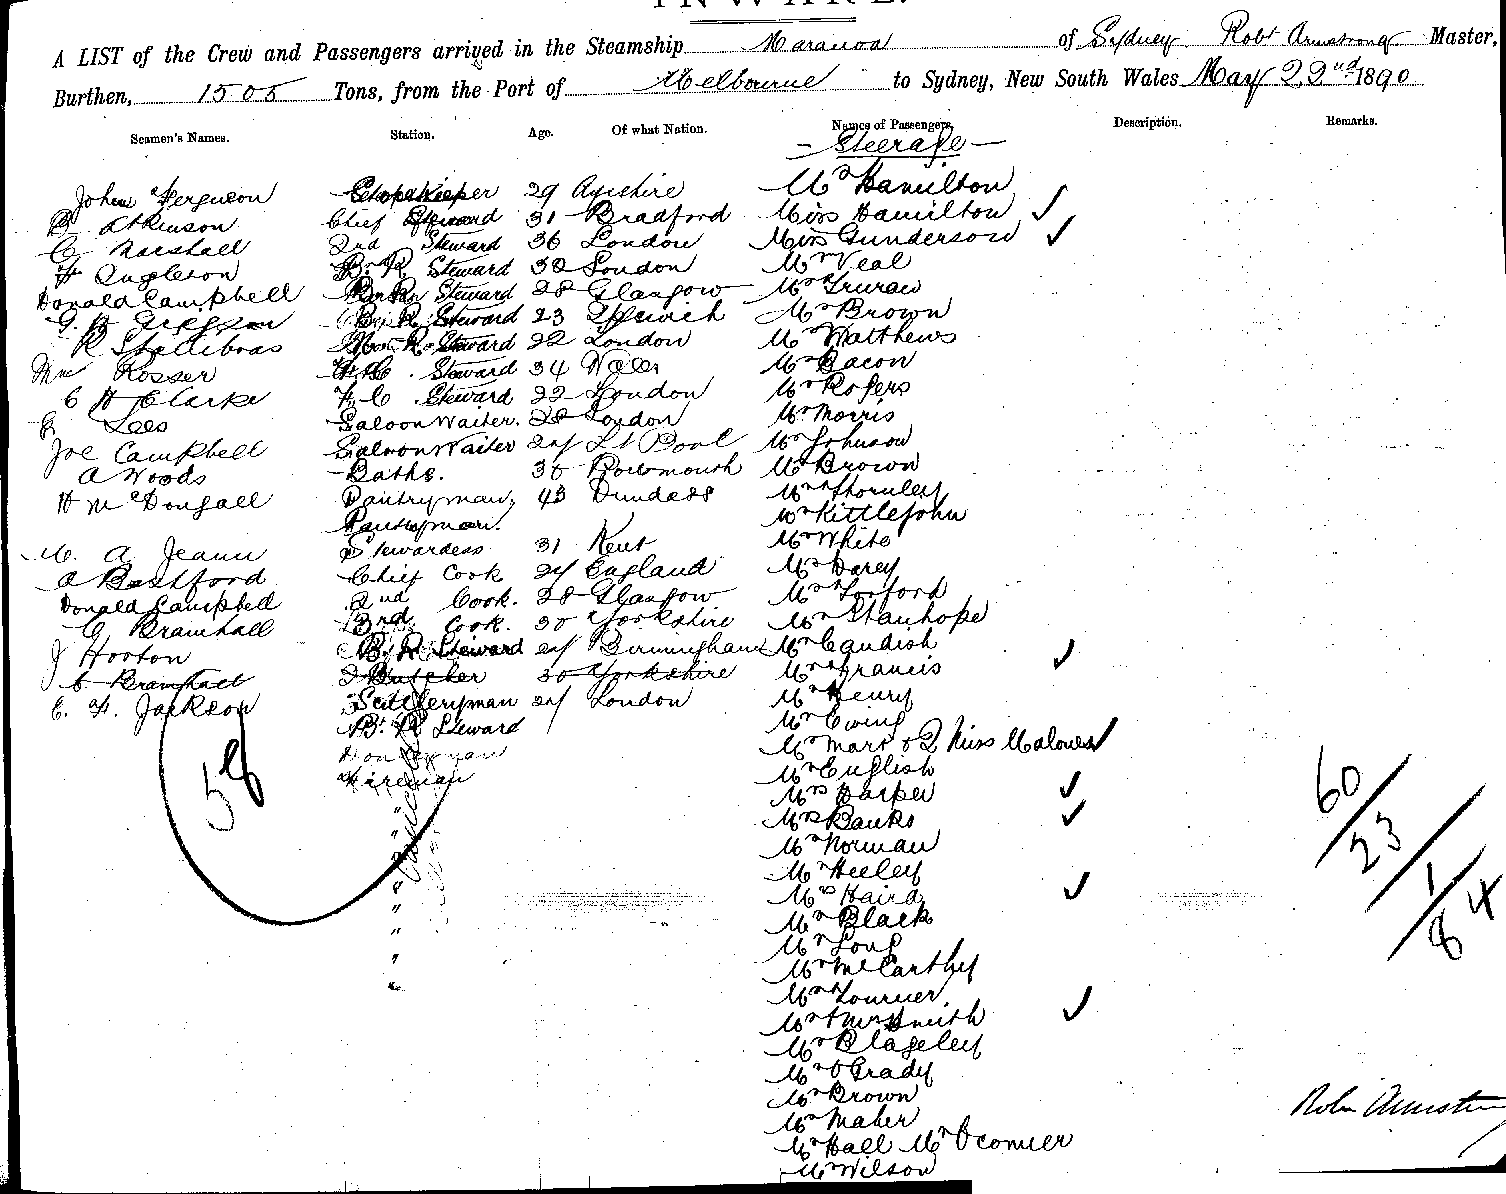 INWARD.
A LIST of the Crew and Passengers arrived in the Steamship Maranoa of Sydney Robt Armstrong Master,
Burthen, 1505 Tons, from the Port of Melbourne to Sydney, New South Wales May 22nd 1890
Seamen's Names. Station. Age. Of what Nation. Names of Passengers. Description. Remarks.
Steerage
John Ferguson Storekeeper 29 Ayrshire Mr Hamilton
B Atkinson Chief Steward 31 Bradford Miss Hamilton ✓
C Marshall 2nd Steward 36 London Miss Gunderson ✓
H Angleton B. R Steward 30 London Mr Veal
Donald Campbell Steward 28 Glasgow Mr Truran
Steward 23 Ipswich Mr Brown
R Stallibras Steward 22 London Mr Matthews
Wm Rosser Steward 34 Wales Mr Bacon
C H Clarke F. C Steward 22 London Mr Rogers
Lees Saloon Waiter. 28 London Mr Morris
Joe Campbell Saloon Waiter 24 L Pool Mr Johnson
A Woods Baths. 36 Portsmouth Mr Brown
H McDougall Pantryman, 43 Dundass Mr Thornley
Pantryman. Mr Kittlejohn
M. A Jeann Stewardess 31 Kent Mr White
A Bastford Chief Cook 24 England Mr Darcy
Donald Campbell 2nd Cook. 28 Glasgow Mr Torford
C Bramhall 3rd Cook. 30 Yorkshire Mr Stanhope
J Horton B. R Steward 24 Birmingham Mr Candish
C Bramhall Butcher 30 Yorkshire Mr Francis ✓
E. H. Jackson Sculleryman 24 London Mr Henry
Bt. R Steward Mr Ewing
Donkeyman Mr Marr & 2 Miss Malones ✓
Fireman Mr English
58 Mrs Harper ✓
" Mrs Banks ✓
" Mr Norman
" Mr Heeley
" Mrs Haird ✓
" Mr Black
" Mr Long
" Mr McCarthy
" Mr Tourner
Mr & Mrs Smith ✓
Mr Blageley
Mr O Grady
Mr Brown
Mr Maher
Mr Hall Mr O'conner
Mr Wilson
60
23
1
84